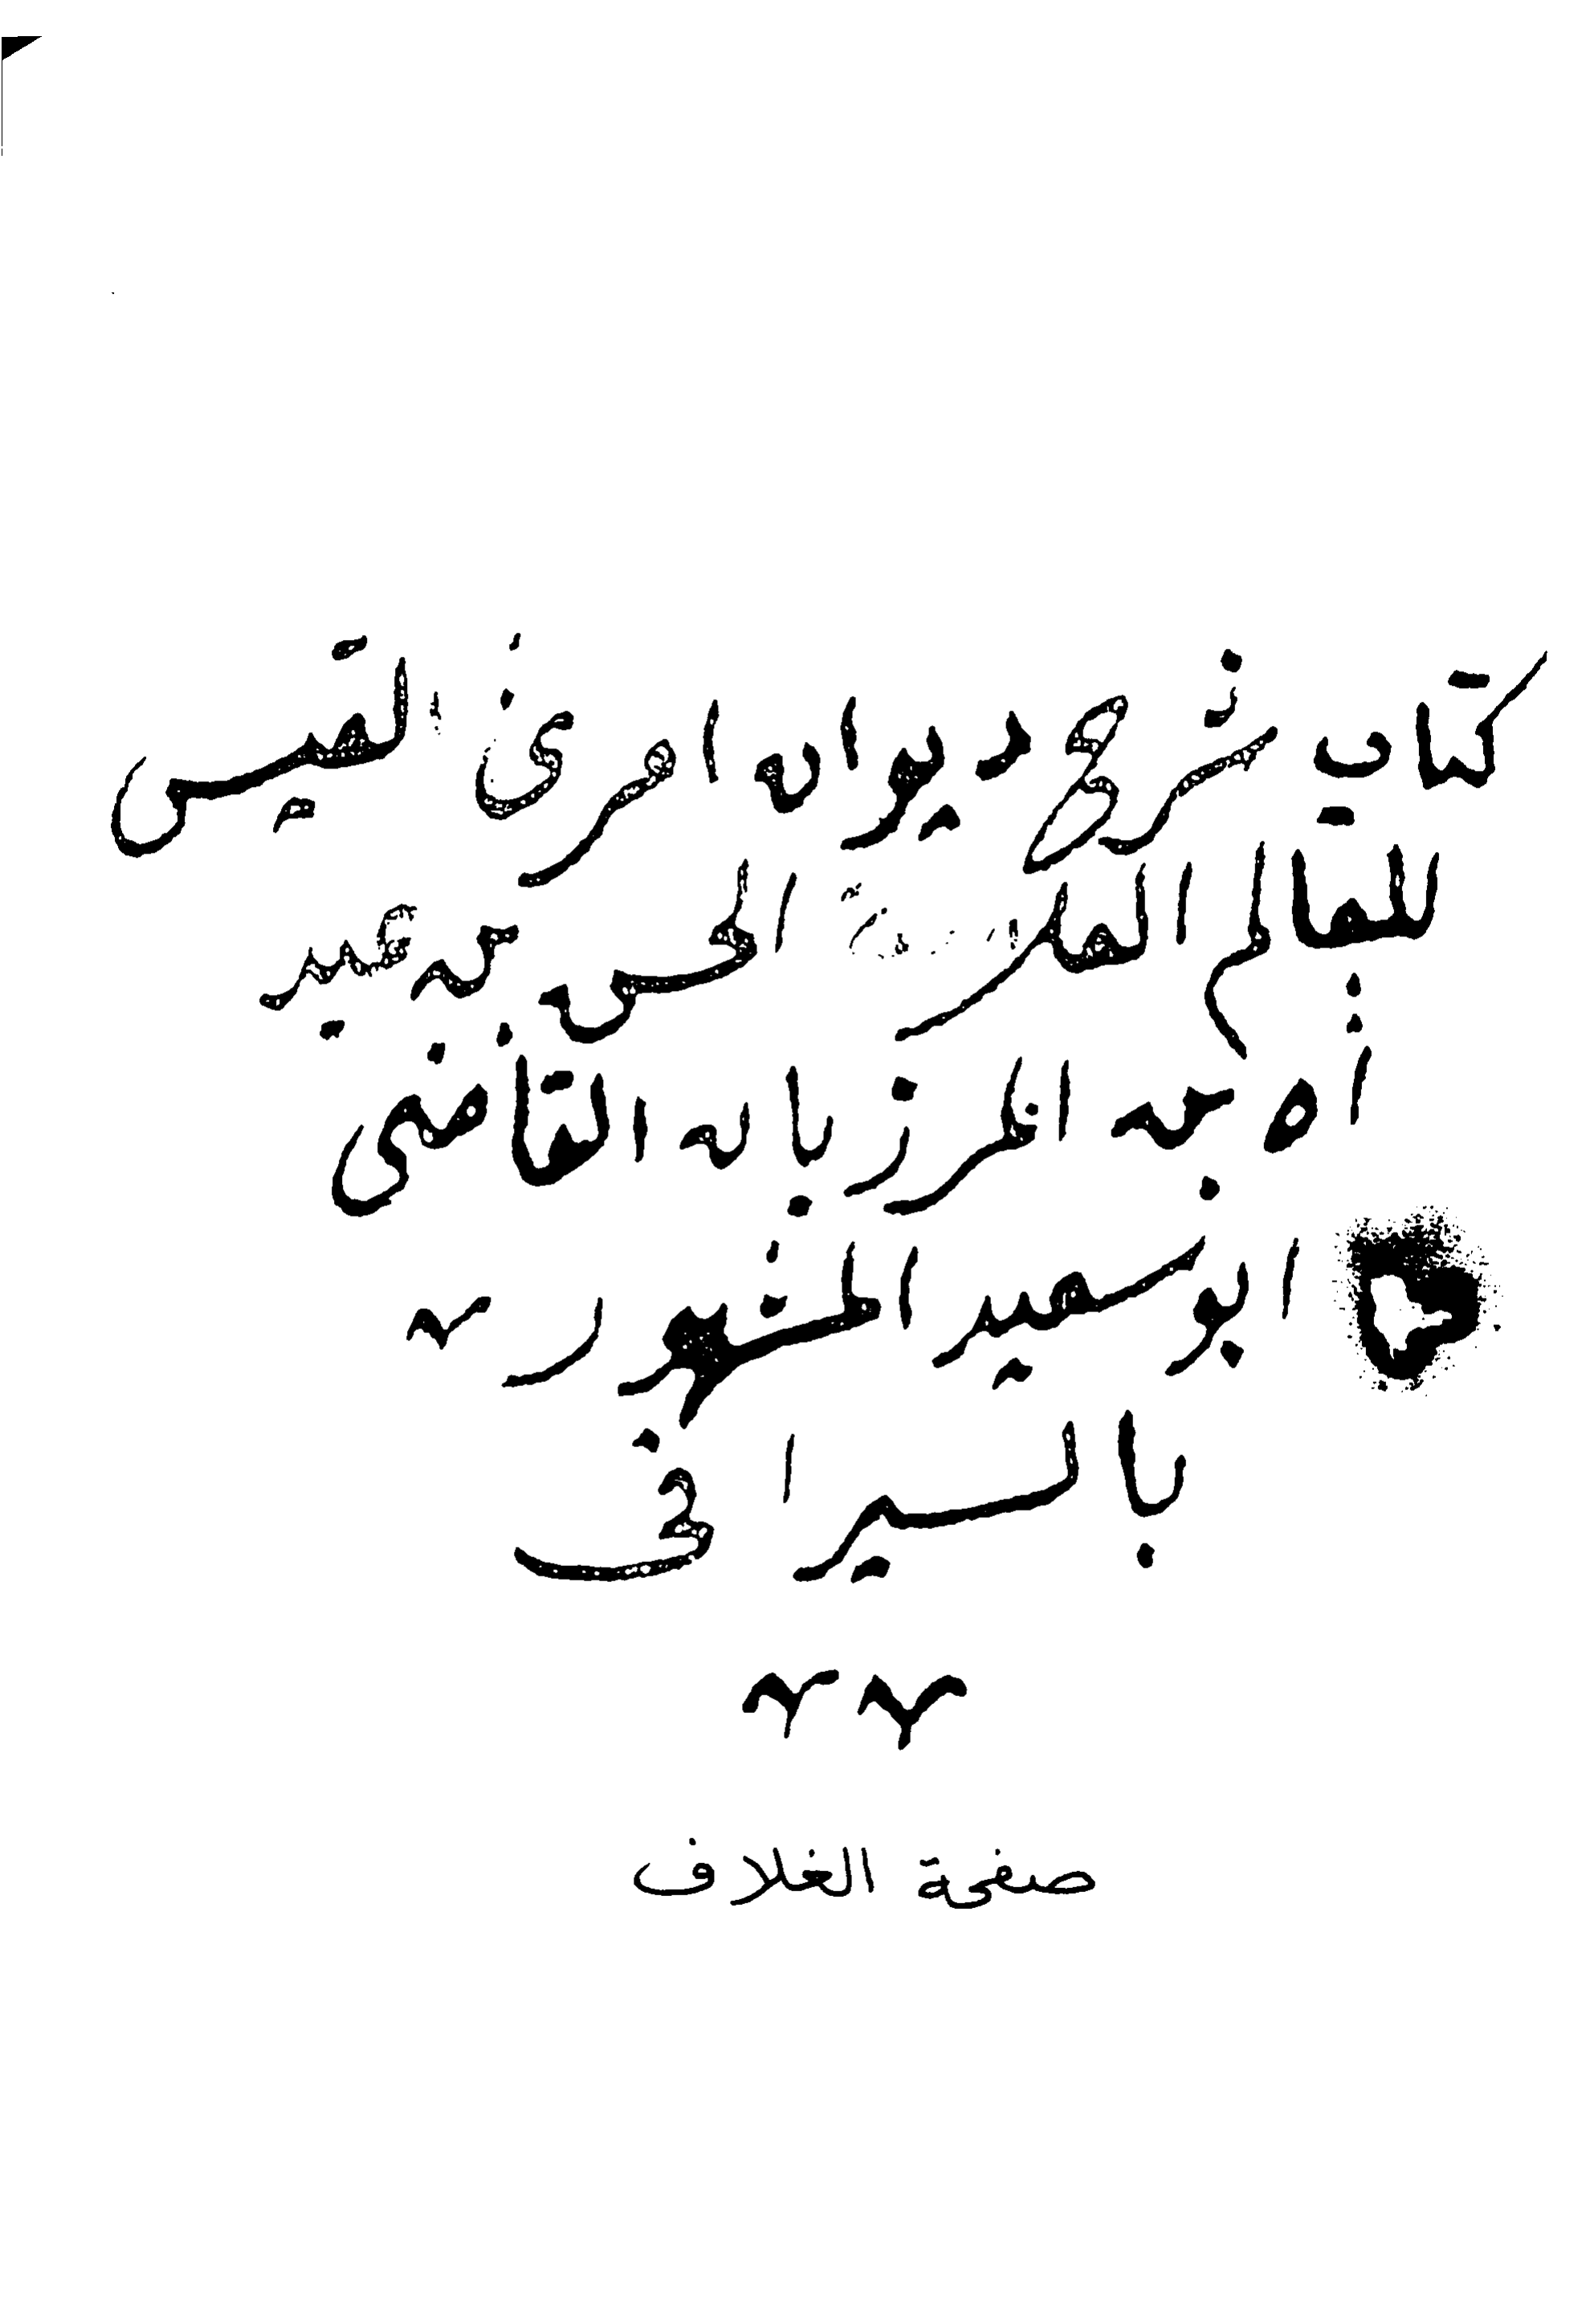 كتاب شرح ديوان امرئ القيس
للعالم العلامة الحسن بن عبد
أمه بن المرزبان القاضى
ابو سعيد المشهور
بالسيرافى
صفحة الغلاف